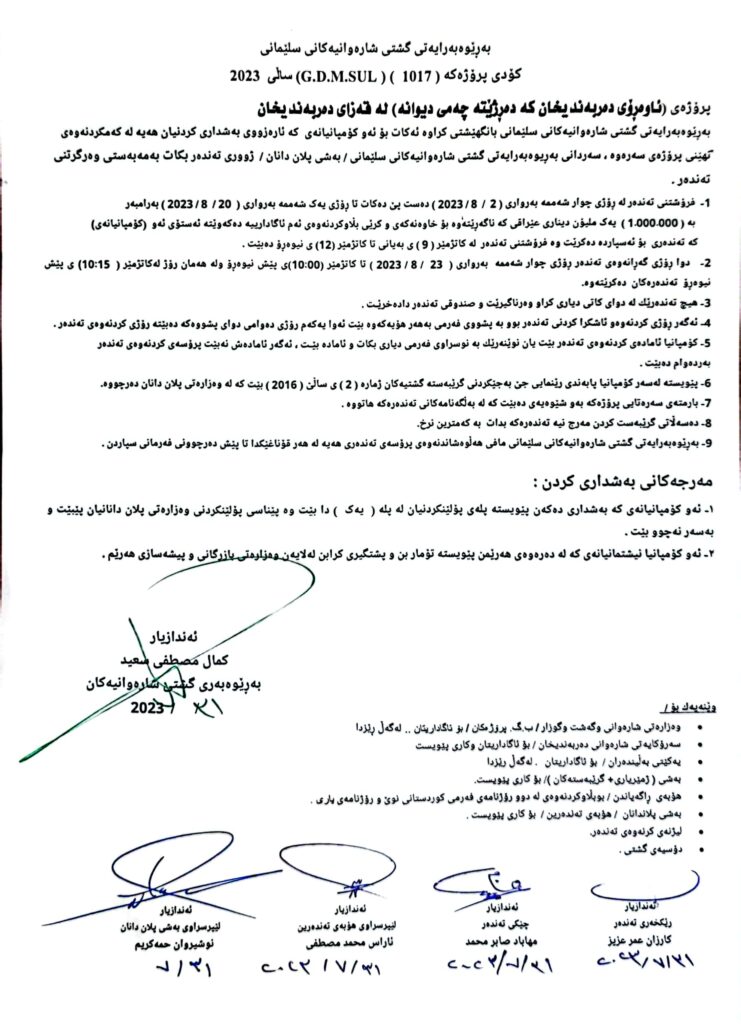 بەڕێوەبەرایەتی گشتی شارەوانیەکانی سلێمانی
کۆدی پرۆژەکە ( 1017 ) (G.D.M.SUL) ساڵی 2023
پرۆژەی (ئاوەڕۆی دەربەندیخان کە دەرژێتە چەمی دیوانە) لە قەزای دەربەندیخان
بەڕێوەبەرایەتی گشتی شارەوانیەکانی سلێمانی بانگهێشتی کراوە ئەکات بۆ ئەو کۆمپانیانەی کە ئارەزووی بەشداری کردنیان هەیە لە کەمکردنەوەی
نهێنی پرۆژەی سەرەوە ، سەردانی بەڕیوەبەرایەتی گشتی شارەوانیەکانی سلێمانی / بەشی پلان دانان / ژووری تەندەر بکات بەمەبەستی وەرگرتنی
تەندەر .
1- فرۆشتنی تەندەر لە ڕۆژی چوار شەممە بەرواری ( 2 / 8 / 2023 ) دەست پێ دەکات تا ڕۆژی یەک شەممە بەرواری ( 20 / 8 / 2023 ) بەرامبەر
بە ( 1.000.000 ) یەک ملیۆن دیناری عێراقی کە ناگەڕێتەوە بۆ خاوەنەکەی و کرێی بڵاوکردنەوەی ئەم ئاگادارییە دەکەوێتە ئەستۆی ئەو (کۆمپانیانەی)
کە تەندەری بۆ ئەسپاردە دەکرێت وە فرۆشتنی تەندەر لە کاتژمێر ( 9 ) ی بەیانی تا کاتژمێر (12) ی نیوەڕۆ دەبێت .
2- دوا رۆژی گەڕانەوەی تەندەر ڕۆژی چوار شەممە بەرواری ( 23 / 8 / 2023 ) تا کاتژمێر (10:00)ی پێش نیوەڕۆ ولە هەمان رۆژ لەکاتژمێر ( 10:15 ) ی پێش
نیوەڕۆ تەندەرەکان دەکرێتەوە.
3- هیچ تەندەرێك لە دوای کاتی دیاری کراو وەرناگیرێت و صندوقی تەندەر دادەخرێت .
4- ئەگەر ڕۆژی کردنەوەو ئاشکرا کردنی تەندەر بوو بە پشووی فەرمی بەهەر هۆیەکەوە بێت ئەوا یەکەم رۆژی دەوامی دوای پشووەکە دەبێتە رۆژی کردنەوەی تەندەر .
5- کۆمپانیا ئامادەی کردنەوەی تەندەر بێت یان نوێنەرێك بە نوسراوی فەرمی دیاری بکات و ئامادە بێت ، ئەگەر ئامادەش نەبێت پرۆسەی کردنەوەی تەندەر
بەردەوام دەبێت .
6- پێویستە لەسەر کۆمپانیا پابەندی رێنمایی جێ بەجێکردنی گرێبەستە گشتیەکان ژمارە ( 2 ) ی ساڵێ ( 2016 ) بێت کە لە وەزارەتی پلان دانان دەرچووە.
7- بارمتەی سەرەتایی پرۆژەکە بەو شێوەیەی دەبێت کە لە بەڵگەنامەکانی تەندەرەکە هاتووە .
8- دەسەڵاتی گرێبەست کردن مەرج نیە تەندەرەکە بدات بە کەمترین نرخ.
9- بەڕێوەبەرایەتی گشتی شارەوانیەکانی سلێمانی مافی هەڵوەشاندنەوەی پرۆسەی تەندەری هەیە لە هەر قۆناغێکدا تا پێش دەرچوونی فەرمانی سپاردن .
مەرجەکانی بەشداری کردن :
١- ئەو کۆمپانیانەی کە بەشداری دەکەن پێویستە پلەی پۆلێنکردنیان لە پلە ( یەک ) دا بێت وە پێناسی پۆلێنکردنی وەزارەتی پلان دانانیان پێبێت و
بەسەر نەچوو بێت .
٢- ئەو کۆمپانیا نیشتمانیانەی کە لە دەرەوەی هەرێمن پێویستە تۆمار بن و پشتگیری کرابن لەلایەن وەزارەتی بازرگانی و پیشەسازی هەرێم .
ئەندازیار
کمال مصطفی سعید
بەڕێوەبەری گشتی شارەوانیەکان
٣١ / ٧ / 2023
وێنەیەك بۆ /
• وەزارەتی شارەوانی وگەشت وگوزار / ب.گ. پرۆژەکان / بۆ ئاگاداریتان .. لەگەڵ ڕێزدا
• سەرۆکایەتی شارەوانی دەربەندیخان / بۆ ئاگاداریتان وکاری پێویست
• یەکێتی بەڵیندەران / بۆ ئاگاداریتان . لەگەڵ رێزدا
• بەشی ( ژمێریاری+ گرێبەستەکان )/ بۆ کاری پێویست.
• هۆبەی ڕاگەیاندن / بوبڵاوکردنەوەی لە دوو رۆژنامەی فەرمی کوردستانی نوێ و رۆژنامەی باری .
• بەشی پلاندانان / هۆبەی تەندەرین / بۆ کاری پێویست .
• لیژنەی کرنەوەی تەندەر.
• دۆسیەی گشتی .
ئەندازیار
رێکخەری تەندەر
کارزان عمر عزیز
٢٠٢٣/٧/٣١
ئەندازیار
چێکی تەندەر
مهاباد صابر محمد
٢٠٢٣/٧/٣١
ئەندازیار
لێپرسراوی هۆبەی تەندەرین
ئاراس محمد مصطفی
٢٠٢٣/٧/٣١
ئەندازیار
لێپرسراوی بەشی پلان دانان
نوشیروان حمەکریم
٧/٣١